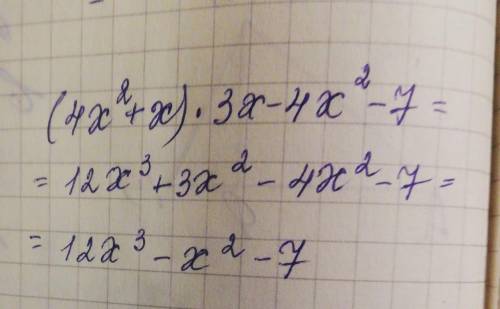 (4x²+x)·3x-4x²-7=
=12x³+3x²-4x²-7=
=12x³-x²-7